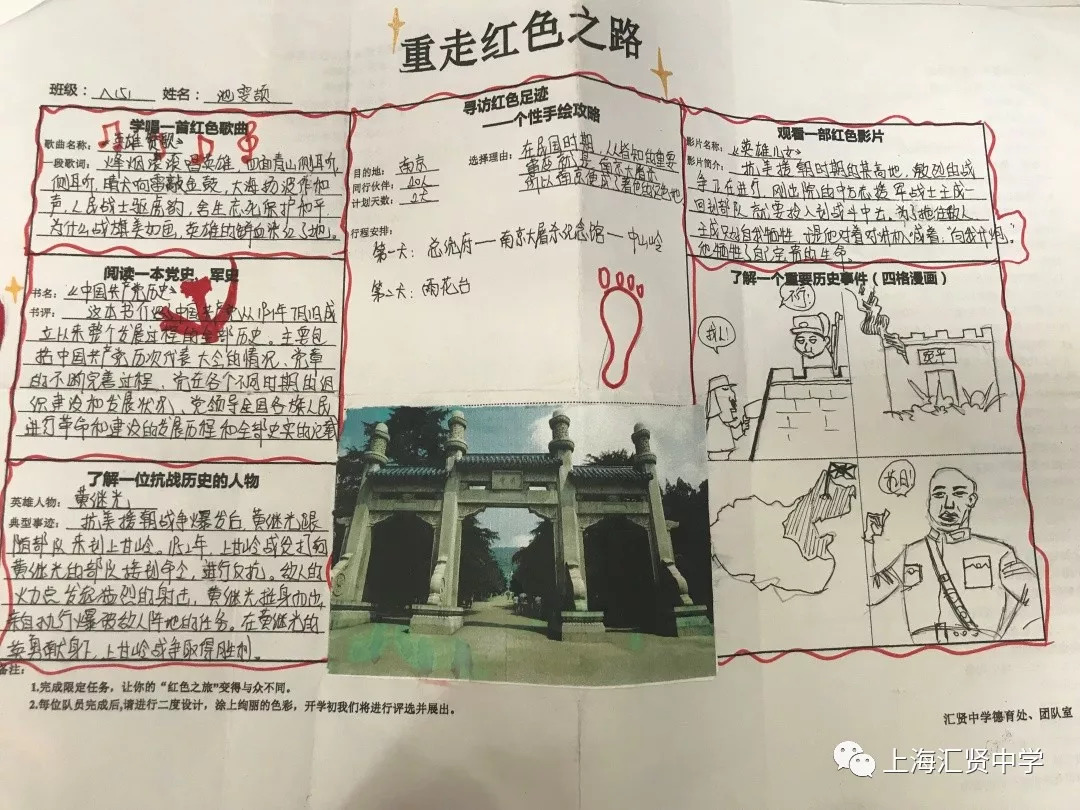 重走红色之路
班级： 姓名：
学唱一首红色歌曲
歌曲名称：《英雄赞歌》
一段歌词：烽烟滚滚唱英雄，四面青山侧耳听，
侧耳听，晴天响雷敲金鼓，大海扬波作和
声，人民战士驱虎豹，舍生忘死保护和平
为什么战旗美如画，英雄的鲜血染红了地。
阅读一本党史、军史
书名：《中国共产党历史》
书评：这本书介绍中国共产党从1921年7月1日成
立以来整个发展过程的全部历史。主要包
括中国共产党历次代表大会的情况、党章
的不断完善过程、党在各个不同时期的组
织建设和发展状况、党领导全国各族人民
进行革命和建设的发展历程和全部史实的记载
了解一位抗战历史的人物
英雄人物：黄继光
典型事迹：抗美援朝战争爆发后，黄继光跟
随部队来到上甘岭。1952年，上甘岭战役打响
黄继光的部队接到命令，进行反抗。敌人的
火力点发起猛烈的射击，黄继光挺身而出，
亲自执行爆破敌人阵地的任务。在黄继光的
英勇献身下，上甘岭战争取得胜利。
寻访红色足迹
——个性手绘攻略
目的地：南京
同行伙伴：
计划天数：2天
选择理由：在民国时期，人人皆知的重要
事故就是南京大屠杀
所以南京便成了著名的红色地
行程安排：
第一天：总统府——南京大屠杀纪念馆——中山岭
第二天：雨花台
观看一部红色影片
影片名称：《英雄儿女》
影片简介：抗美援朝时期的某高地，激烈的战
争正在进行，刚出院的中方志愿军战士王成一
回到部队就要投入到战斗中去。为了拖住敌人
王成只好自我牺牲，于是他对着对讲机喊着，“向我开炮。”
他牺牲了自己宝贵的生命。
了解一个重要历史事件（四格漫画）
不行！
找人！
宛平
备注：
1.完成限定任务，让你的“红色之旅”变得与众不同。
2.每位队员完成后,请进行二度设计，涂上绚丽的色彩，开学初我们将进行评选并展出。
汇贤中学德育处、团队室
上海汇贤中学